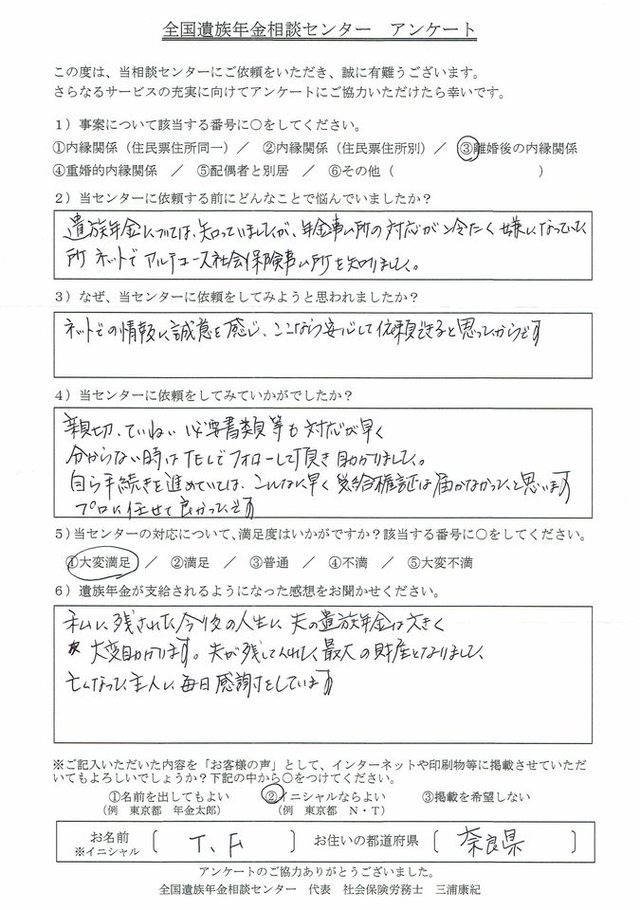 全国遺族年金相談センター　アンケート
この度は、当相談センターにご依頼をいただき、誠に有難うございます。
さらなるサービスの充実に向けてアンケートにご協力いただけたら幸いです。
1）事案について該当する番号に○をしてください。
①内縁関係（住民票住所同一）／　②内縁関係（住民票住所別）／　③離婚後の内縁関係
④重婚的内縁関係　／　⑤配偶者と別居　／　⑥その他（　　　　　　　　　　）
2）当センターに依頼する前にどんなことで悩んでいましたか？
遺族年金については、知っていましたが、年金事ム所の対応が冷たく嫌になっていた
所 ネットで アルテユース社会保険事ム所を知りました。
3）なぜ、当センターに依頼をしてみようと思われましたか？
ネットでの情報に誠意を感じ、ここなら安心して依頼できると思ったからです
4）当センターに依頼をしてみていかがでしたか？
親切、ていねい 必要書類等も対応が早く
分からない時はTELでフォローして頂き助かりました。
自ら手続きを進めていては、こんなに早く受給権証は届かなかったと思います
プロに任せて良かったです
5）当センターの対応について、満足度はいかがですか？該当する番号に○をしてください。
①大変満足　／　②満足　／　③普通　／　④不満　／　⑤大変不満
6）遺族年金が支給されるようになった感想をお聞かせください。
私に残された今後の人生に 夫の遺族年金は大きく
大変助かります。夫が残してくれた最大の財産となりました
亡くなった主人に毎日感謝をしています
※ご記入いただいた内容を「お客様の声」として、インターネットや印刷物等に掲載させていただ
いてもよろしいでしょうか？下記の中から○をつけてください。
①名前を出してもよい　②イニシャルならよい　③掲載を希望しない
（例　東京都　年金太郎）　（例　東京都　N・T）
お名前　［　T. F　］　お住いの都道府県　［　奈良県　］
※イニシャル
アンケートのご協力ありがとうございました。
全国遺族年金相談センター　代表　社会保険労務士　三浦康紀